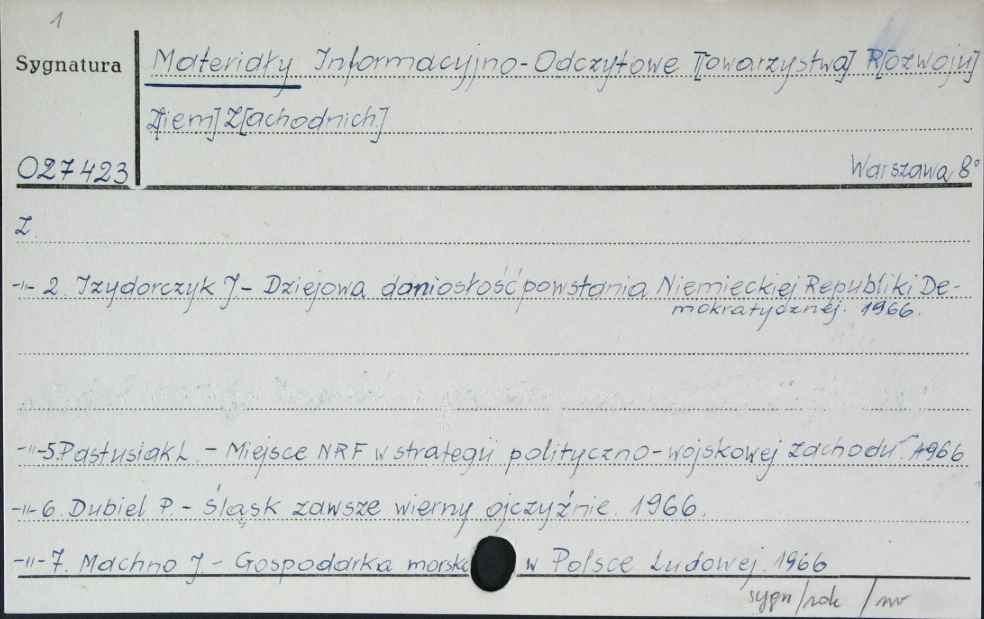 1
Sygnatura
Materiały Informacyjno-Odczytowe T[owarzystwa] R[ozwoju]
Z[iem] Z[achodnich]
027423
Warszawa 8°
Z.
-"- 2. Izydorczyk J - Dziejowa doniosłość powstania Niemieckiej Republiki De-
mokratycznej. 1966.
-"- 5. Pastusiak L. - Miejsce NRF w strategii polityczno-wojskowej zachodu. 1966
-"- 6. Dubiel P. - Śląsk zawsze wierny ojczyźnie. 1966.
-"- 7. Machno J - Gospodarka morska w Polsce Ludowej. 1966
sygn/rok /nr